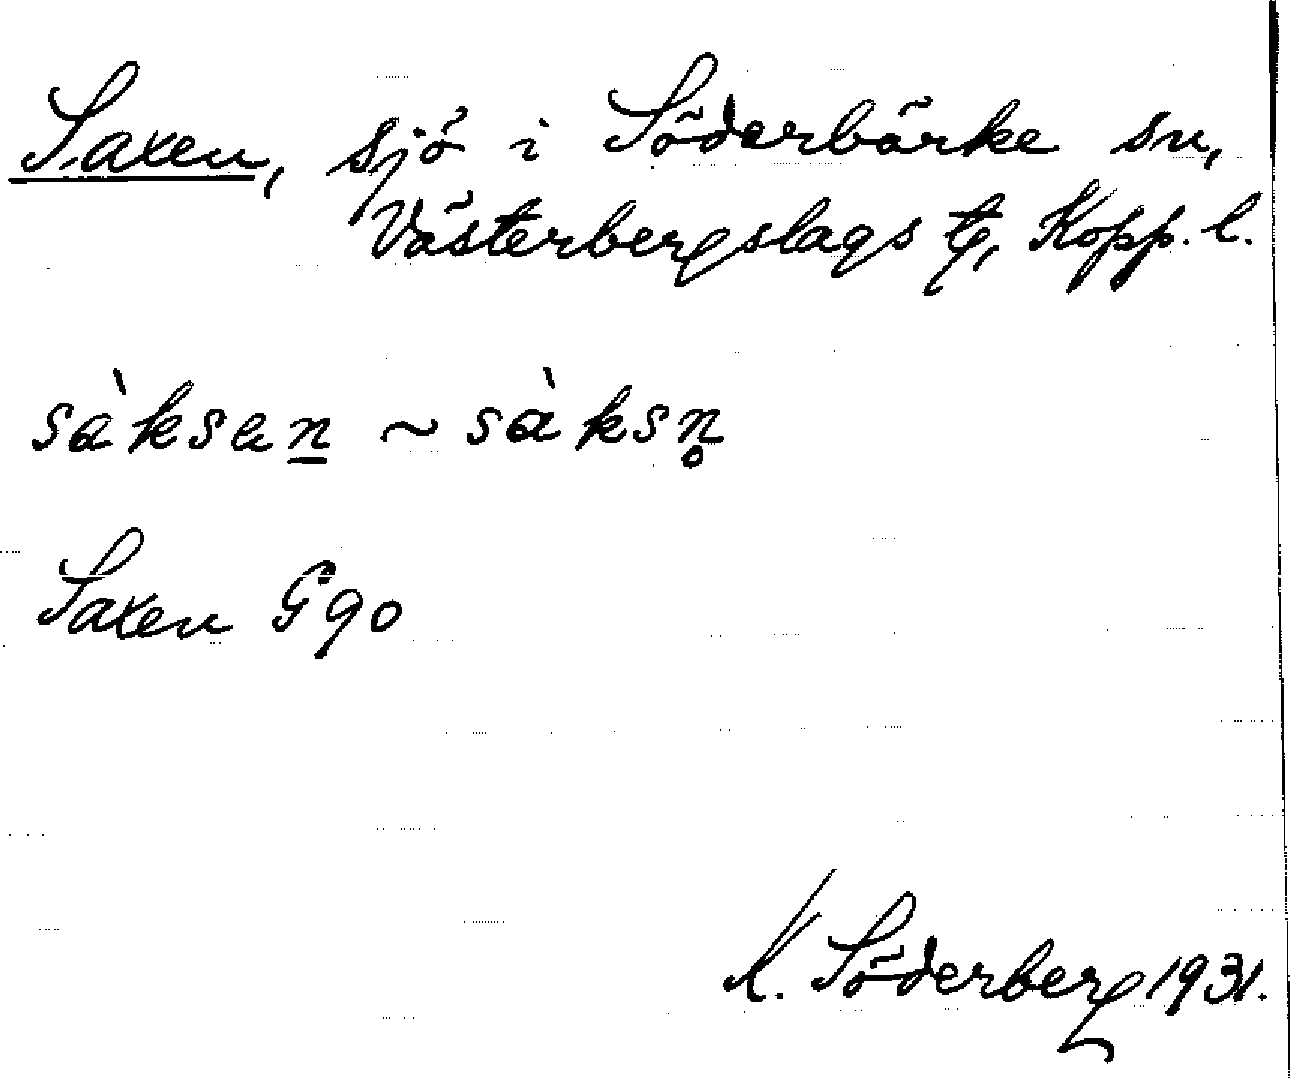 Saxen, sjö i Söderbärke sn,
Västerbergslags tg, Kopp. l.
sàksen ~ sàksn̥
Saxen G 90
K. Söderberg 1931.